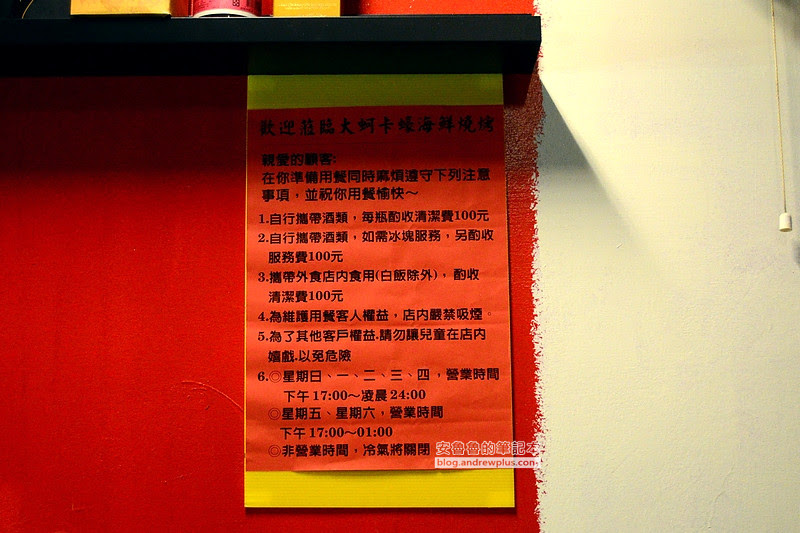 歡迎蒞臨大蚵卡蠔海鮮燒烤
親愛的顧客:
在你準備用餐同時麻煩遵守下列注意
事項，並祝你用餐愉快～
1.自行攜帶酒類，每瓶酌收清潔費100元
2.自行攜帶酒類，如需冰塊服務，另酌收
服務費100元
3.攜帶外食店內食用(白飯除外)，酌收
清潔費100元
4.為維護用餐客人權益，店內嚴禁吸煙。
5.為了其他客戶權益.請勿讓兒童在店內
嬉戲.以免危險
6.◎星期日、一、二、三、四，營業時間
下午17:00～凌晨24:00
◎星期五、星期六，營業時間
下午17:00～01:00
◎非營業時間，冷氣將關閉
安魯魯的筆記本
blog.andrewplus.com